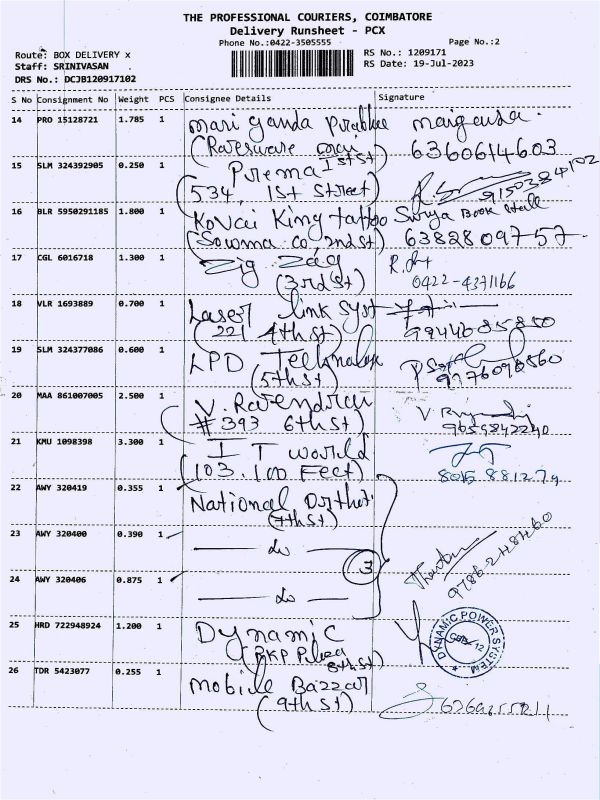 THE PROFESSIONAL COURIERS, COIMBATORE
Delivery Runsheet - PCX
Phone No.:0422-3505555
Page No.:2
Route: BOX DELIVERY x
RS No.: 1209171
Staff: SRINIVASAN
RS Date: 19-Jul-2023
DRS No.: DCJB120917102
S No Consignment No Weight PCS Consignee Details Signature
14 PRO 15128721 1.785 1 mari ganda Prabhu
6360614603
15 SLM 324392905 0.250 1 Prema Ist St
(534, 1st Street) 9150384102
16 BLR 5950291185 1.800 1 Kovai King tattoo Surya Book Stall
(Sowma co 2nd St) 63828 09757
17 CGL 6016718 1.300 1 Zig Zag
(3rd St) 0422-4371166
18 VLR 1693889 0.700 1 Laser link Syst
(221 4th St) 9944685850
19 SLM 324377086 0.600 1 LPD
(5th St)
20 MAA 861007005 2.500 1 V. Ravendran
(# 393 6th St) 9659842240
21 KMU 1098398 3.300 1 IT world
(103. 100 Feet)
22 AWY 320419 0.355 1 National Orthot.
(7th St)
23 AWY 320400 0.390 1 — do —
3
24 AWY 320406 0.875 1 — do —
25 HRD 722948924 1.200 1 Dynamic
(RKP Plaza
8th St)
DYNAMIC POWER SYSTEM
26 TDR 5423077 0.255 1 mobile Bazzar
(9th St)